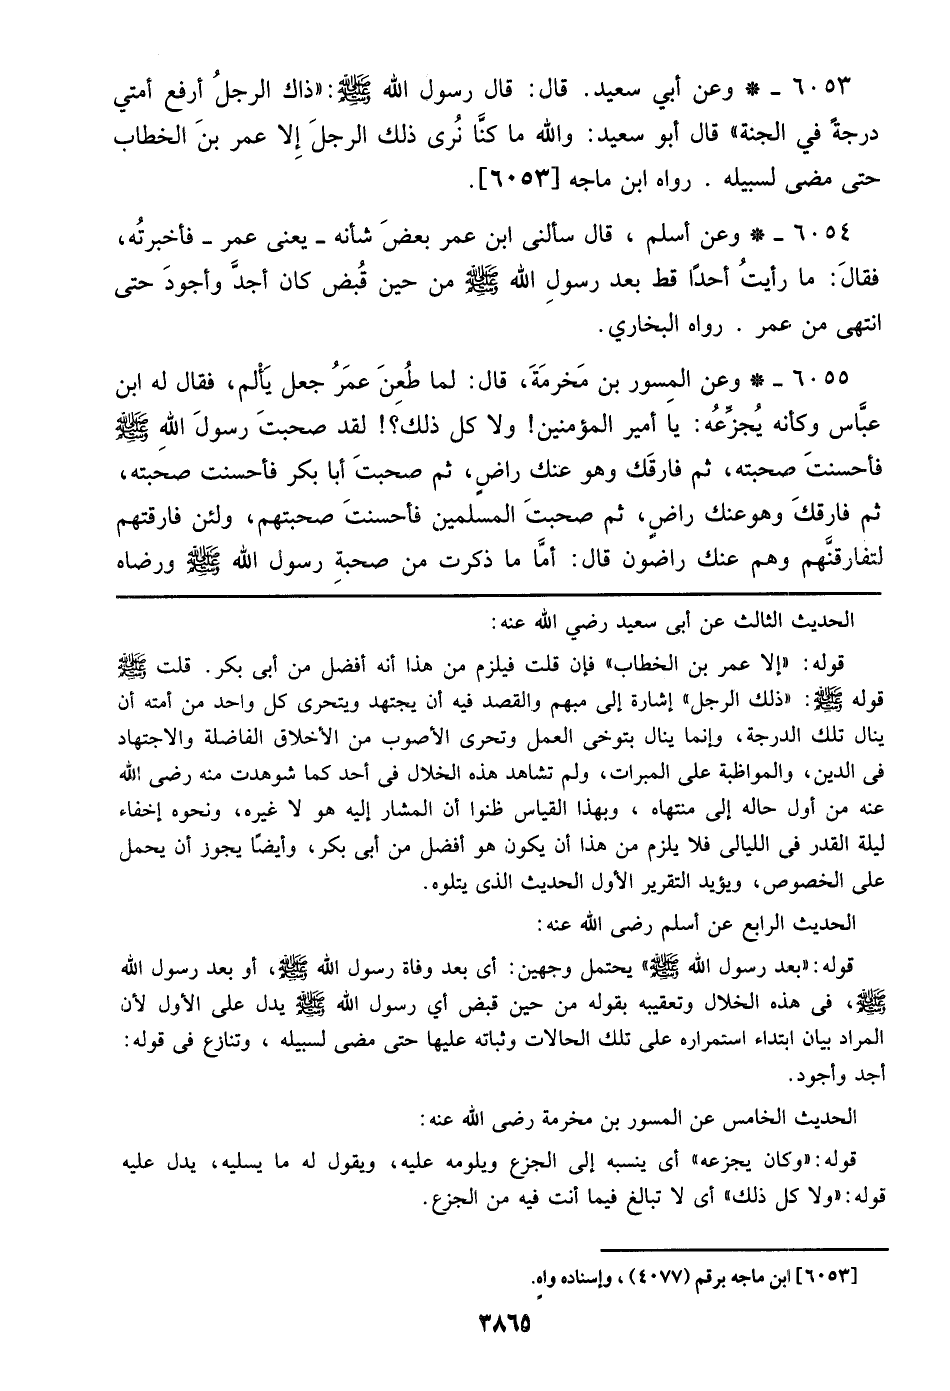 ٦٠٥٣ ـ * وعن أبي سعيد. قال: قال رسول الله ﷺ: «ذاك الرجلُ أرفع أمتي
درجةً في الجنة» قال أبو سعيد: والله ما كنَّا نُرى ذلك الرجلَ إلا عمر بنَ الخطاب
حتى مضى لسبيله . رواه ابن ماجه [٦٠٥٣].
٦٠٥٤ ـ * وعن أسلم ، قال سألنى ابن عمر بعضَ شأنه ـ يعنى عمر ـ فأخبرتُه،
فقالَ: ما رأيتُ أحدًا قط بعد رسولِ الله ﷺ من حين قُبض كان أجدَّ وأجودَ حتى
انتهى من عمر . رواه البخاري.
٦٠٥٥ ـ * وعن المِسور بن مَخرمَةَ، قال: لما طُعِنَ عمَرُ جعل يَألم، فقال له ابن
عبَّاس وكأنه يُجزِّعُه: يا أمير المؤمنين! ولا كل ذلك؟! لقد صحبتَ رسولَ اللهِ ﷺ
فأحسنتَ صحبته، ثم فارقَك وهو عنك راضٍ، ثم صحبتَ أبا بكر فأحسنت صحبته،
ثم فارقكَ وهوعنك راضٍ، ثم صحبتَ المسلمين فأحسنتَ صحبتهم، ولئن فارقتهم
لتفارقنَّهم وهم عنك راضون قال: أمَّا ما ذكرت من صحبةِ رسول الله ﷺ ورضاه
الحديث الثالث عن أبى سعيد رضي الله عنه:
قوله: «إلا عمر بن الخطاب» فإن قلت فيلزم من هذا أنه أفضل من أبى بكر. قلت ﷺ
قوله ﷺ: «ذلك الرجل» إشارة إلى مبهم والقصد فيه أن يجتهد ويتحرى كل واحد من أمته أن
ينال تلك الدرجة، وإنما ينال بتوخى العمل وتحرى الأصوب من الأخلاق الفاضلة والاجتهاد
فى الدين، والمواظبة على المبرات، ولم تشاهد هذه الخلال فى أحد كما شوهدت منه رضى الله
عنه من أول حاله إلى منتهاه ، وبهذا القياس ظنوا أن المشار إليه هو لا غيره، ونحوه إخفاء
ليلة القدر فى الليالى فلا يلزم من هذا أن يكون هو أفضل من أبى بكر، وأيضًا يجوز أن يحمل
على الخصوص، ويؤيد التقرير الأول الحديث الذى يتلوه.
الحديث الرابع عن أسلم رضى الله عنه:
قوله:«بعد رسول الله ﷺ» يحتمل وجهين: أى بعد وفاة رسول الله ﷺ، أو بعد رسول الله
ﷺ، فى هذه الخلال وتعقيبه بقوله من حين قبض أي رسول الله ﷺ يدل على الأول لأن
المراد بيان ابتداء استمراره على تلك الحالات وثباته عليها حتى مضى لسبيله ، وتنازع فى قوله:
أجد وأجود.
الحديث الخامس عن المسور بن مخرمة رضى الله عنه:
قوله:«وكان يجزعه» أى ينسبه إلى الجزع ويلومه عليه، ويقول له ما يسليه، يدل عليه
قوله:«ولا كل ذلك» أى لا تبالغ فيما أنت فيه من الجزع.
[٦٠٥٣] ابن ماجه برقم (٤٠٧٧) ، وإسناده واهٍ.
٣٨٦٥